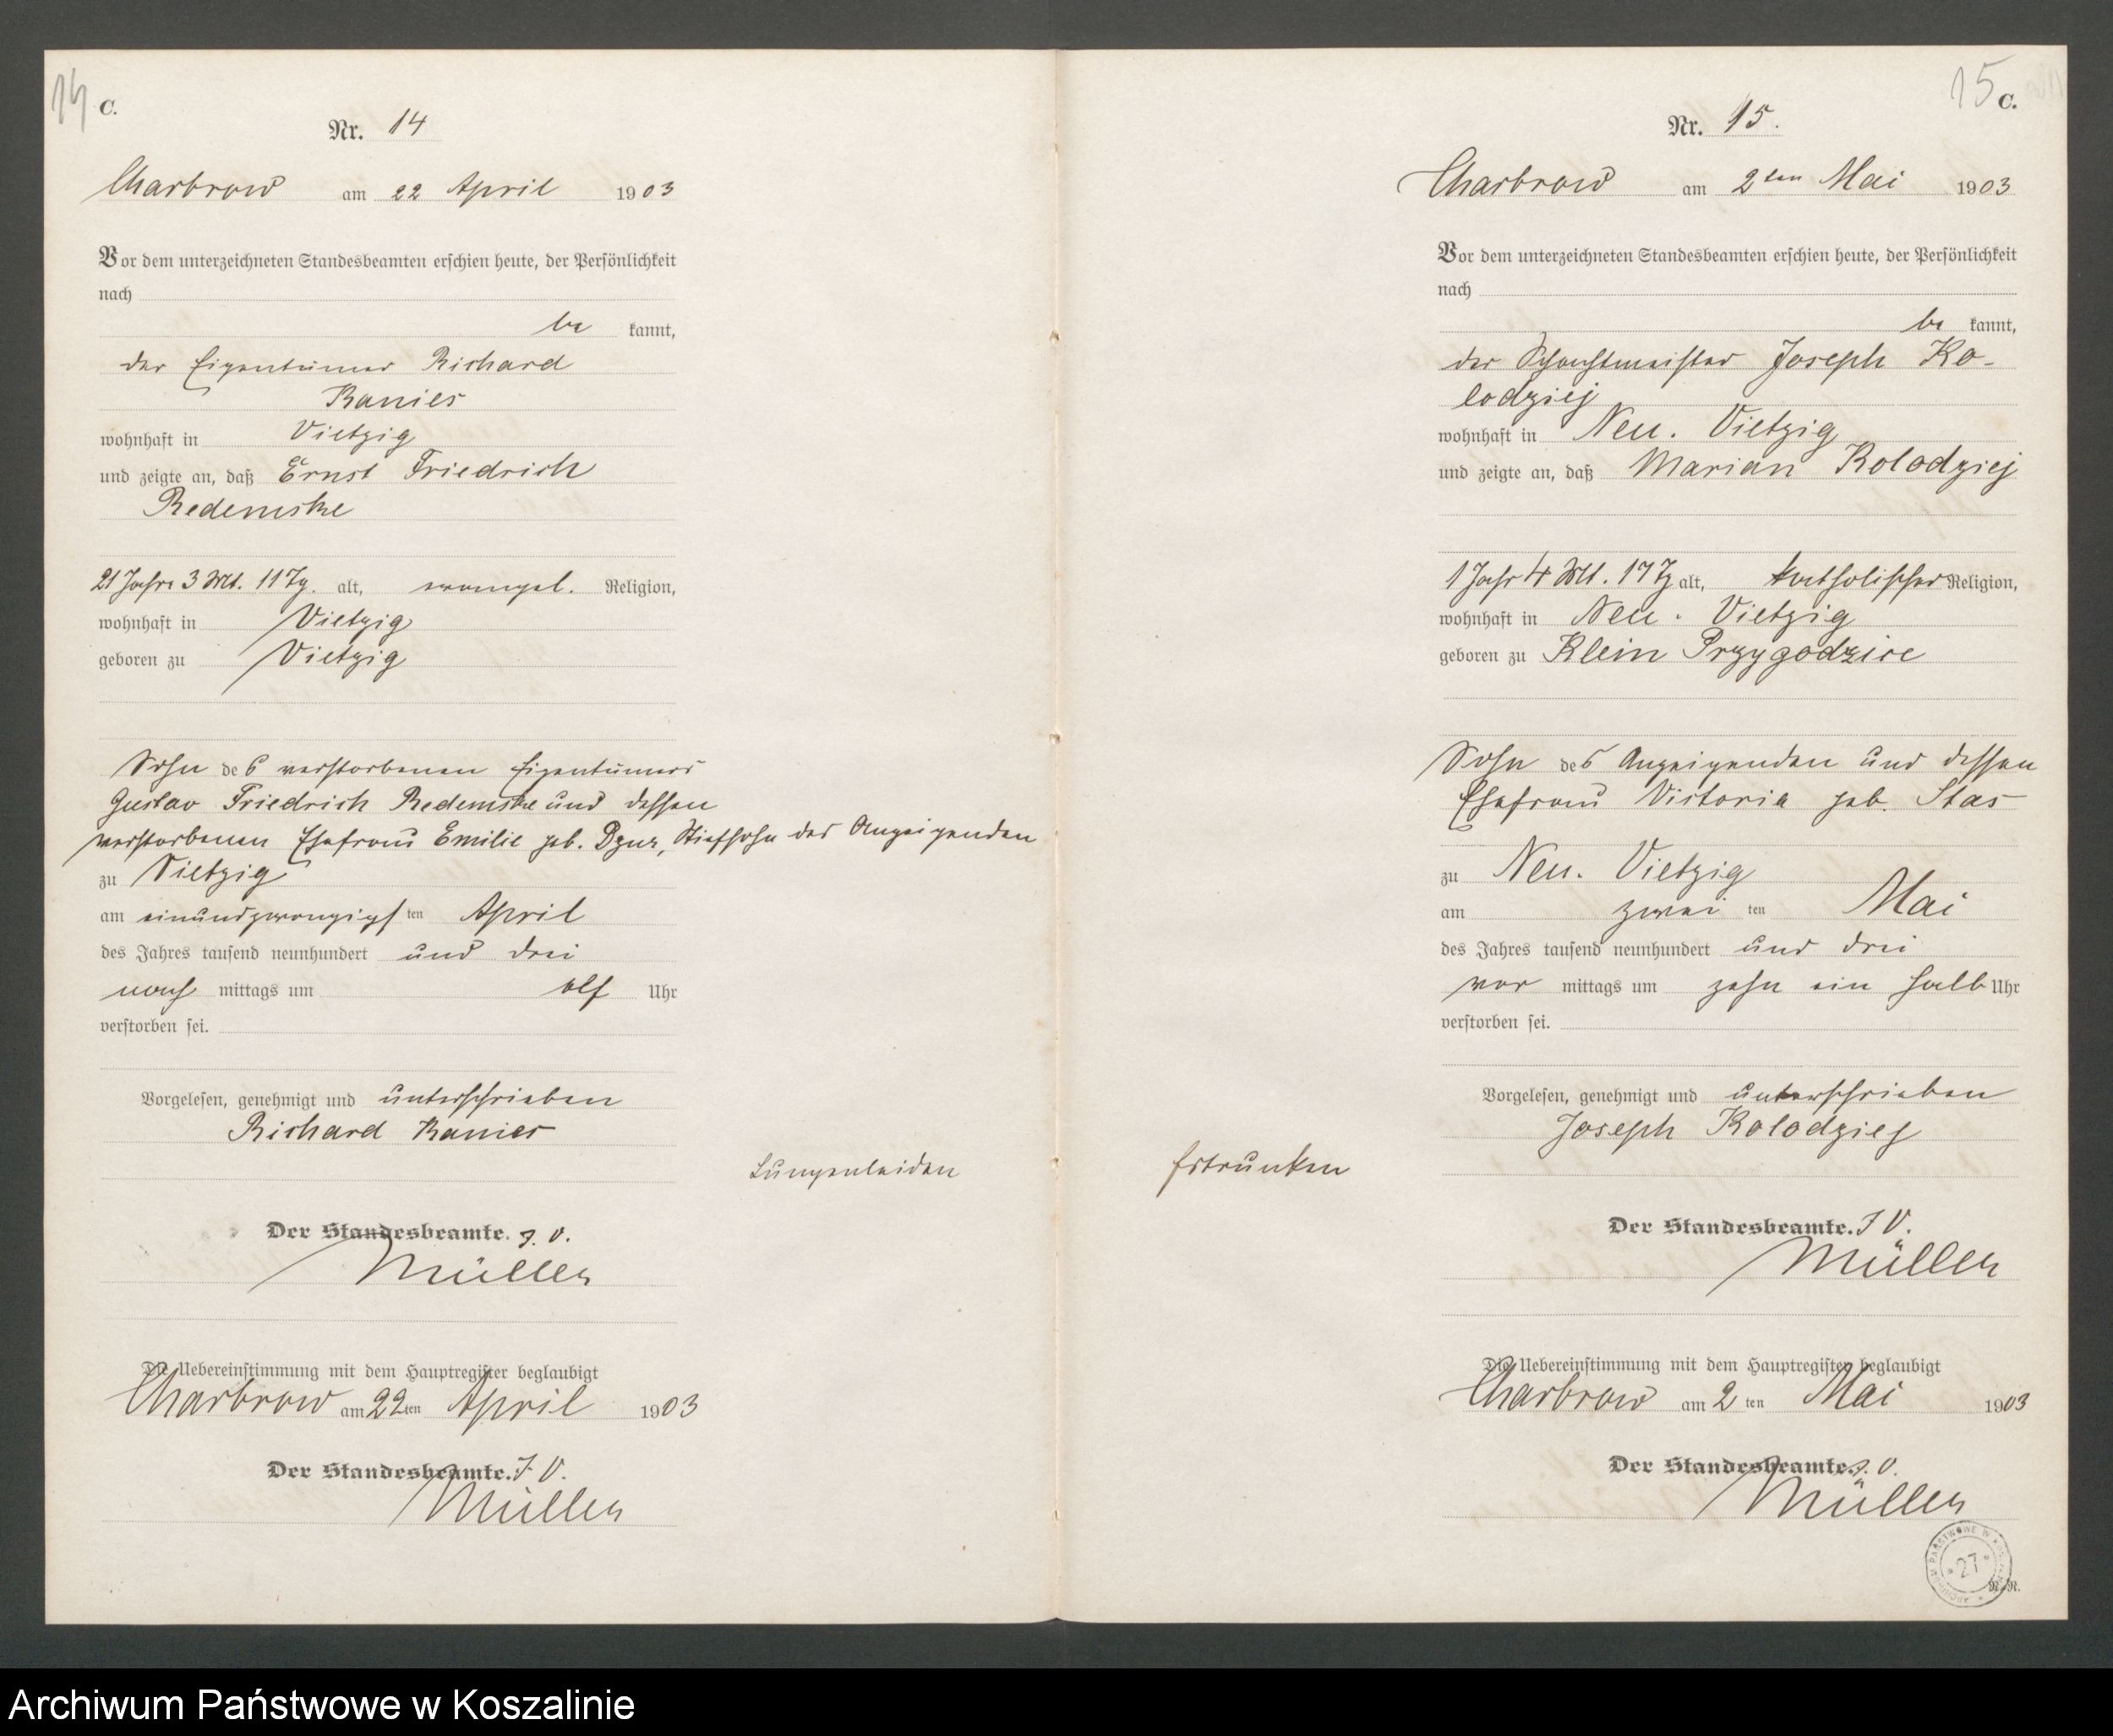 14
C.
Nr. 14
Charbrow am 22 April 1903
Vor dem unterzeichneten Standesbeamten erschien heute, der Persönlichkeit
nach
be kannt,
der Eigentümer Richard
Ranies
wohnhaft in Vietzig
und zeigte an, daß Ernst Friedrich
Redemske
21 Jahre 3 Mt. 11 Tg. alt, evangel. Religion,
wohnhaft in Vietzig
geboren zu Vietzig
Sohn des verstorbenen Eigentümers
Gustav Friedrich Redemske und dessen
verstorbenen Ehefrau Emilie geb. Stiefsohn des Anzeigenden
zu Vietzig
am einundzwanzigsten April
des Jahres tausend neunhundert und drei
nach mittags um elf Uhr
verstorben sei.
Vorgelesen, genehmigt und unterschrieben
Richard Ranies
Lungenleiden
Der Standesbeamte. J. V.
Müller
Die Uebereinstimmung mit dem Hauptregister beglaubigt
Charbrow am 22ten April 1903
Der Standesbeamte. J. V.
Müller
15
C.
Nr. 15.
Charbrow am 2ten Mai 1903
Vor dem unterzeichneten Standesbeamten erschien heute, der Persönlichkeit
nach
be kannt,
der Schachtmeister Joseph Ko-
lodziej
wohnhaft in Neu. Vietzig
und zeigte an, daß Marian Kolodziej
1 Jahr 4 Mt. 17 Tg alt, katholischer Religion,
wohnhaft in Neu. Vietzig
geboren zu Klein Przygodzice
Sohn des Anzeigenden und dessen
Ehefrau Victoria geb. Stas
zu Neu. Vietzig
am zwei ten Mai
des Jahres tausend neunhundert und drei
vor mittags um zehn ein halb Uhr
verstorben sei.
Vorgelesen, genehmigt und unterschrieben
Joseph Kolodziej
Ertrunken
Der Standesbeamte. J V.
Müller
Die Uebereinstimmung mit dem Hauptregister beglaubigt
Charbrow am 2 ten Mai 1903
Der Standesbeamte. J. V.
Müller
27
Archiwum Państwowe w Koszalinie